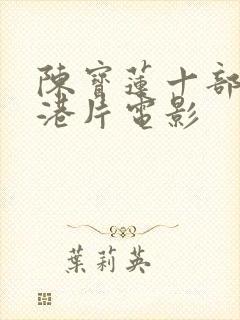 陳寶蓮十部
港片電影
葉莉英